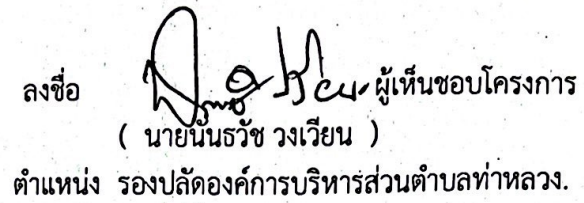 ลงชื่อ ผู้เห็นชอบโครงการ
( นายนันธวัช วงเวียน )
ตำแหน่ง รองปลัดองค์การบริหารส่วนตำบลท่าหลวง.